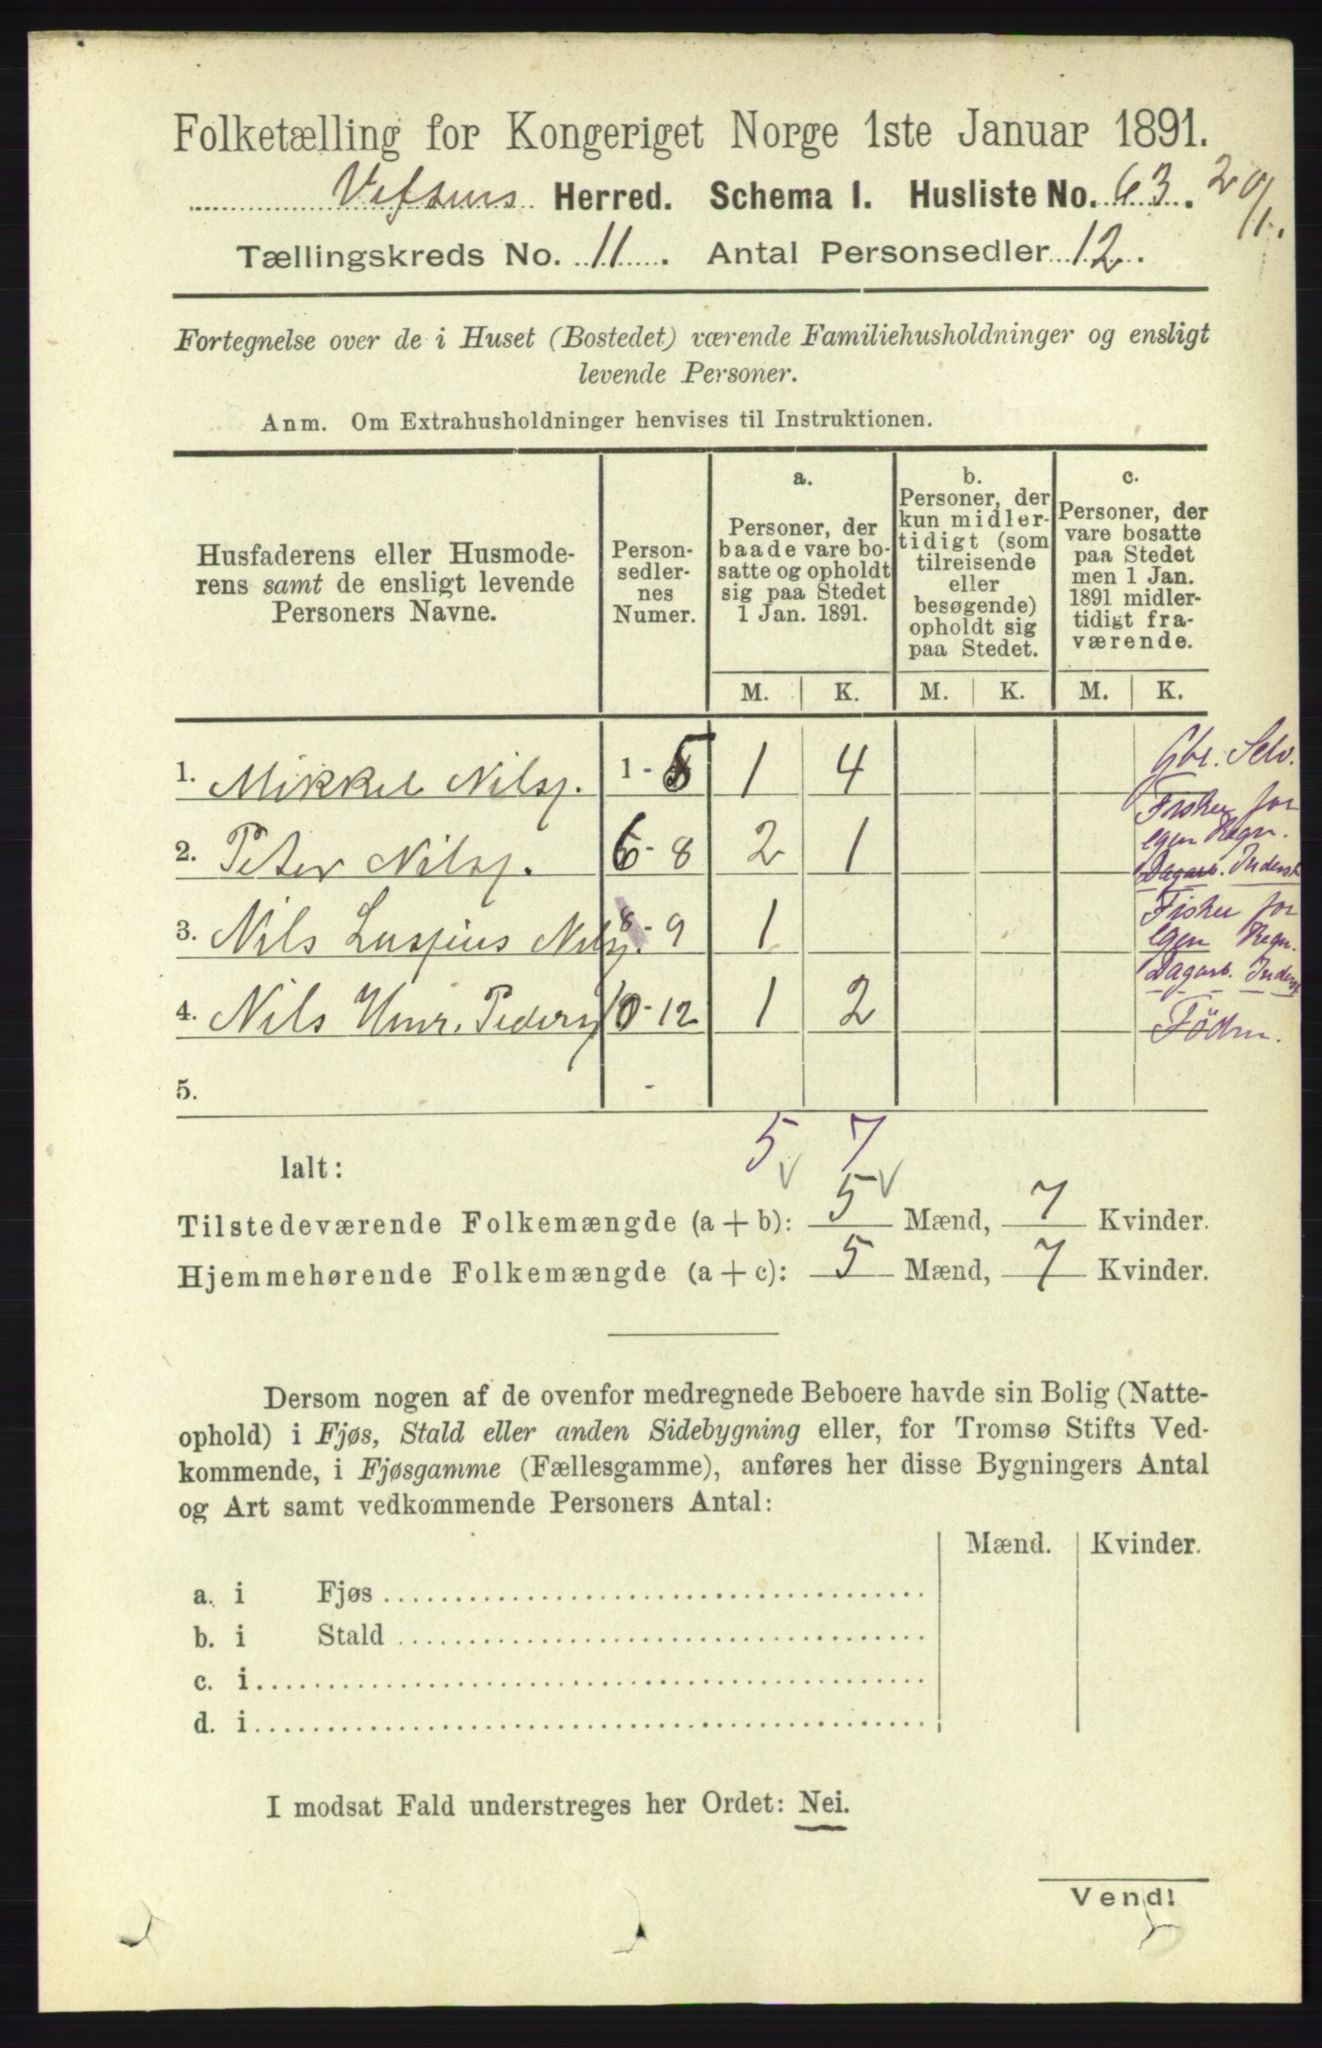 Folketælling for Kongeriget Norge 1ste Januar 1891.
Vefsens Herred. Schema I. Husliste No. 63. 20/1.
Tællingskreds No. 11. Antal Personsedler 12.
Fortegnelse over de i Huset (Bostedet) værende Familiehusholdninger og ensligt
levende Personer.
Anm. Om Extrahusholdninger henvises til Instruktionen.
Husfaderens eller Husmode-
rens samt de ensligt levende
Personers Navne.
Person-
sedler-
nes
Numer.
a.
Personer, der
baade vare bo-
satte og opholdt
sig paa Stedet
1 Jan. 1891.
b.
Personer, der
kun midler-
tidigt (som
tilreisende
eller
besøgende)
opholdt sig
paa Stedet.
c.
Personer, der
vare bosatte
paa Stedet
men 1 Jan.
1891 midler-
tidigt fra-
værende.
M. K. M. K. M. K.
1. Mikkel Nils. 1 - 5 1 4 Gbr. Selv.
2. Peter Nils. 6 - 8 2 1 Fisker for
egen Regn.
Dagarb. Inderst
3. Nils Nils. 8 - 9 1 Fisker for
egen Regn.
Dagarb. Inderst
4. Nils Peders. 10 - 12 1 2
5. -
5 7
Ialt:
Tilstedeværende Folkemængde (a + b): 5 Mænd, 7 Kvinder.
Hjemmehørende Folkemængde (a + c): 5 Mænd, 7 Kvinder.
Dersom nogen af de ovenfor medregnede Beboere havde sin Bolig (Natte-
ophold) i Fjøs, Stald eller anden Sidebygning eller, for Tromsø Stifts Ved-
kommende, i Fjøsgamme (Fællesgamme), anføres her disse Bygningers Antal
og Art samt vedkommende Personers Antal:
Mænd. Kvinder.
a. i Fjøs
b. i Stald
c. i
d. i
I modsat Fald understreges her Ordet: Nei.
Vend!